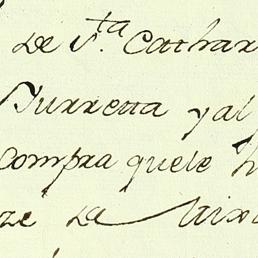 De S.ta Cathar
Burreta y al
compra quele h
ze la